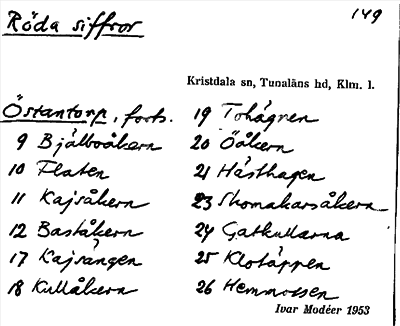 Röda siffror
149
Kristdala sn, Tunaläns hd, Klm. l.
Östantorp, forts.
9 Bjälboåkern
10 Flaten
11 Kajsåkern
12 Baståkern
17 Kajsängen
18 Kullåkern
19 Tohägnen
20 Öåkern
21 Hästhagen
23 Skomakarsåkern
24 Gatkullarna
25 Klotäppen
26 Hemmossen
Ivar Modéer 1953